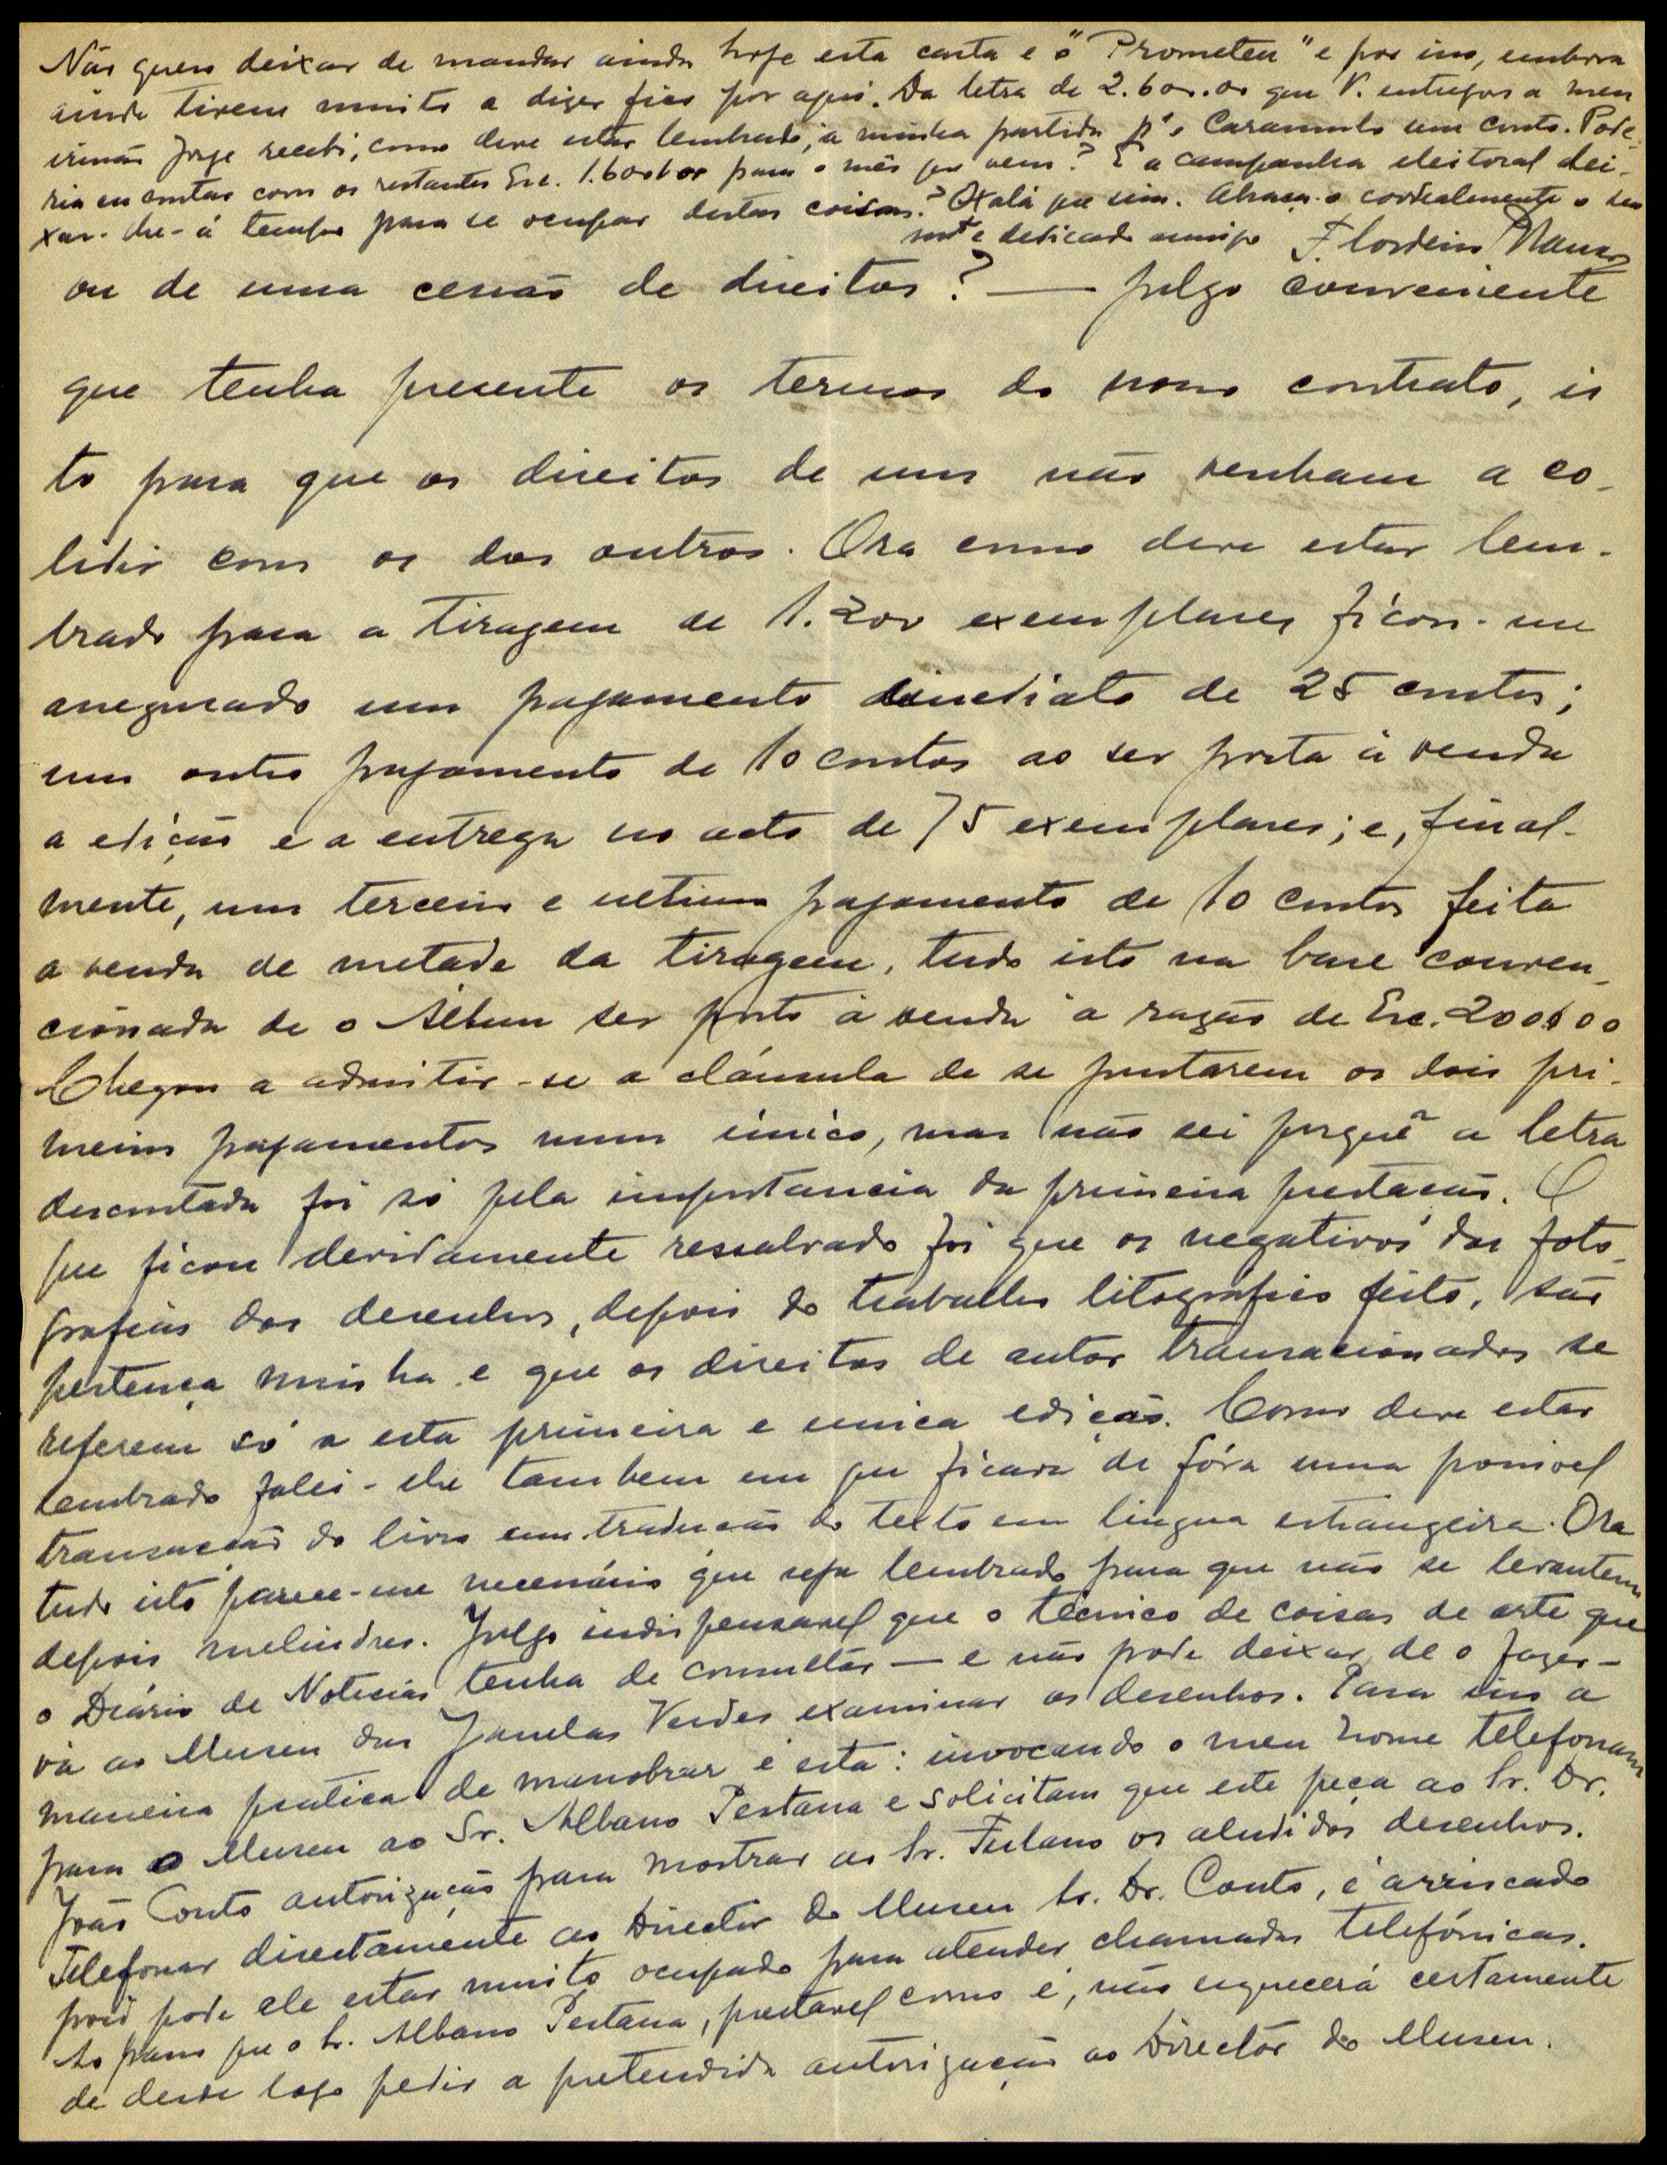 Não quero deixar de mandar ainda hoje esta carta e "o Prometeu" e por isso, embora
ainda tivesse muito a dizer fico por aqui. Da letra de 2.600.00 que V. entregou a meu
irmão Jorge recebi, como deve estar lembrado, á minha partida pª o Caramulo um conto. Pode-
ria eu contar com os restantes Esc. 1.600$00 para o mês que vem? E a campanha eleitoral dei-
xar-lhe-á tempo para se ocupar destas coisas? Oxalá que sim. Abraça-o cordealmente o seu
mtº dedicado amigo
ou de uma cessão de direitos? — Julgo conveniente
que tenha presente os termos do nosso contrato, is
to para que os direitos de uns não venham a co-
lidir com os dos outros. Ora como deve estar lem-
brado para a tiragem de 1.200 exemplares ficou-me
assegurado um pagamento imediato de 25 contos;
um outro pagamento de 10 contos ao ser posta à venda
a edição e a entrega no acto de 75 exemplares; e, final-
mente, um terceiro e ultimo pagamento de 10 contos feita
a venda de metade da tiragem, tudo isto na base conven-
cionada de o Álbum ser posto à venda à razão de Esc. 200$00
Chegou a admitir-se a cláusula de se juntarem os dois pri-
meiros pagamentos num único, mas não sei porquê a letra
descontada foi só pela importancia da primeira prestação. O
que ficou devidamente ressalvado foi que os negativos das foto-
grafias dos desenhos, depois do trabalho litográfico feito, são
pertença minha e que os direitos de autor transacionados se
referem só a esta primeira e unica edição. Como deve estar
lembrado falei-lhe tambem em que ficava de fóra uma possivel
transacção do livro com tradução do texto em lingua estrangeira. Ora
tudo isto parece-me necessário que seja lembrado para que não se levantem
depois melindres. Julgo indispensavel que o técnico de coisas de arte que
o Diário de Noticias tenha de consultar — e não pode deixar de o fazer —
vá ao Museu das Janelas Verdes examinar os desenhos. Para isso a
maneira pratica de manobrar é esta: invocando o meu nome telefonam
para o Museu ao Sr. Albano Pestana e solicitam que este peça ao Sr. Dr.
João Couto autorização para mostrar ao Sr. Fulano os aludidos desenhos.
Telefonar directamente ao Director do Museu Sr. Dr. Couto, é arriscado
pois pode ele estar muito ocupado para atender chamadas telefónicas.
Ao passo que o Sr. Albano Pestana, prestavel como é, não esquecerá certamente
de desde logo pedir a pretendida autorização ao Director do Museu.